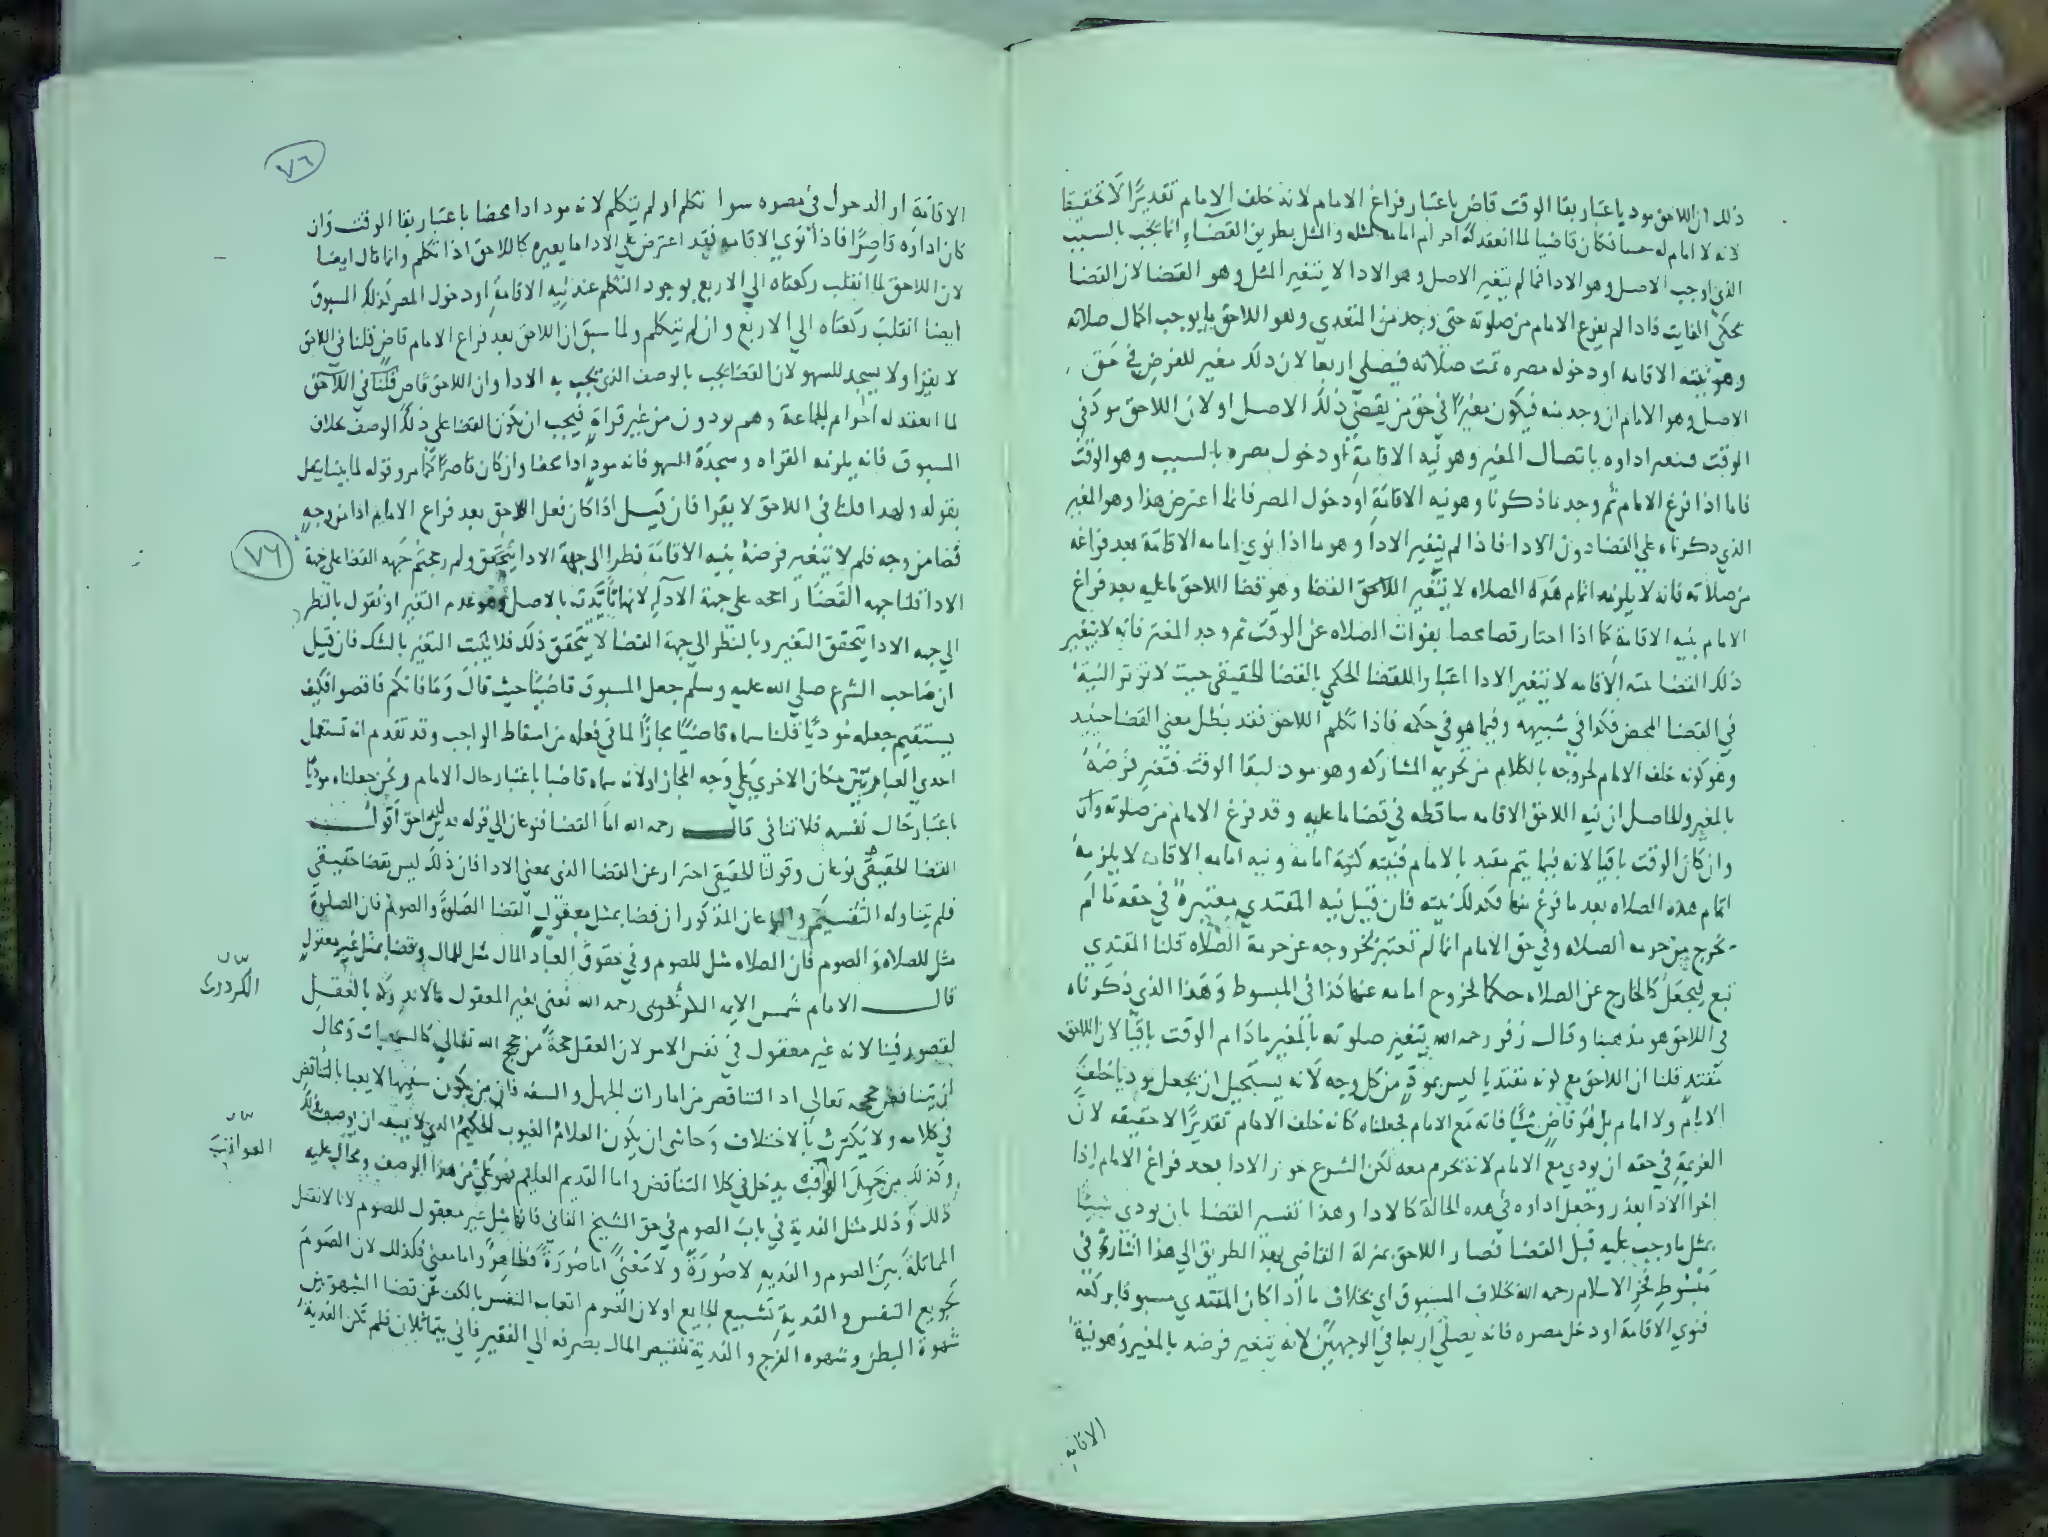 ذلك ان اللاحق مود باعتبار بقا الوقت قاض باعتبار فراغ الامام لانه خلف الامام تقديرًا لا تحقيقا
لانه لا امام له حسا فكان قاضيا لما انعقد له احرام امامه بمثله والمثل بطريق القضاء انما يجب بالسبب
الذي اوجب الاصل وهو الادا فما لم يتغير الاصل وهو الادا لا يتغير المثل وهو القضا لان القضا
يحكي الفايت فاذا لم يفرغ الامام من صلوته حتى وجد من المقتدي وهو اللاحق ما يوجب اكمال صلاته
وهو نيته الاقامه او دخوله مصره تمت صلاته فيصلي اربعا لان ذلك مغير للفرض في حق
الاصل وهو الامام ان وجد منه فيكون مغيرًا في حق من يقضي ذلك الاصل او لان اللاحق مود في
الوقت فيتغير اداوه باتصال المغير وهو نيه الاقامة او دخول مصره بالسبب وهو الوقت
فاما اذا فرغ الامام ثم وجد ما ذكرنا وهو نيه الاقامة او دخول المصر فانما اعترض هذا وهو المغير
الذي ذكرناه علي القضا دون الادا فاذا لم يتغير الادا وهو ما اذا نوي امامه الاقامة بعد فراغه
من صلاته فانه لا يلزمه اتمام هذه الصلاه لا يتغير اللاحق القضا وهو قضا اللاحق ما عليه بعد فراغ
الامام بنيه الاقامة كما اذا صار قضا محضا بفوات الصلاه عن الوقت ثم وجد المغير فانه لا يتغير
ذلك القضا بنيه الاقامه لا يتغير الادا اعتبارا للقضا الحكمي بالقضا الحقيقي حيث لا توثر النية
في القضا المحض فكذا في شبيهه وفيما هو في حكمه فاذا تكلم اللاحق فقد بطل معني القضا حينيد
وهو كونه خلف الامام لخروجه بالكلام من تحريمه المشاركه وهو مود لبقا الوقت فتغير فرضه
بالمغير والحاصل ان نيه اللاحق الاقامه ساقطه في قضا ما عليه وقد فرغ الامام من صلوته وان
وان كان الوقت باقيا لانه فيما يتم مقتد بالامام فنيته كنية امامه ونيه امامه الاقامة لا يلزمه
اتمام هذه الصلاه بعد ما فرغ منها فكذلك نيته فان قيل نيه المقتدي معتبرة في حقه ما لم
يخرج من حرمه الصلاه وفي حق الامام انما لم تعتبر لخروجه عن حرمة الصلاه قلنا المقتدي
تبع فيجعل كالخارج عن الصلاه حكما لخروج امامه عنها كذا في المبسوط وهذا الذي ذكرناه
في اللاحق هو مذهبنا وقال زفر رحمه الله يتغير صلوته بالمغير ما دام الوقت باقيا لان اللاحق
مقتد قلنا ان اللاحق مع كونه مقتديا ليس بمودٍ من كل وجه لانه يستحيل ان يجعل موديا خلف
الامام ولا امام بل هو قاض شيئا فاته مع الامام فجعلناه كانه خلف الامام تقديرًا لا حقيقه لان
العزيمة في حقه ان يودي مع الامام لانه تحرم معه لكن الشرع جوز الادا بعد فراغ الامام اذا
اخر الادا بعذر وجعل اداوه في هذه الحالة كالادا وهذا تفسير القضا بان يودي شيئا
بمثل ما وجب عليه قبل القضا فصار اللاحق بمنزلة القاضي بهذا الطريق الي هذا اشارة في
مبسوط فخر الاسلام رحمه الله بخلاف المسبوق اي بخلاف ما اذا كان المقتدي مسبوقا بركعه
فنوي الاقامة او دخل مصره فانه يصلي اربعا في الوجهين لانه يتغير فرضه بالمغير وهو نية
الاقامة
٧٦
الاقامة او الدخول في مصره سوا تكلم او لم يتكلم لانه مود ادا محضا باعتبار بقا الوقت وان
كان اداوه قاصرًا فاذا نوي الاقامه فقد اعترض علي الادا ما يغيره كاللاحق اذا تكلم وانما قال ايضا
لان اللاحق لما انقلب ركعتاه الي الاربع بوجود التكلم عند نيه الاقامة او دخول المصر فكذلك المسبوق
ايضا انقلب ركعتاه الي الاربع وان لم يتكلم ولما سبق ان اللاحق بعد فراغ الامام قاض قلنا في اللاحق
لا يقرا ولا يسجد للسهو لان القضا يجب بالوصف الذي يجب به الادا وان اللاحق قاض قلنا في اللاحق
لما انعقد له احرام الجماعة وهم يودون من غير قراة فيجب ان يكون القضا علي ذلك الوصف بخلاف
المسبوق فانه يلزمه القراه وسجدة السهو فانه مود ادا محضا وان كان قاصرًا كما مر وقوله لما بينا يعمل
بقوله ولهذا قلنا في اللاحق لا يقرا فان قيل اذا كان فعل اللاحق بعد فراغ الامام ادا من وجه
٧٦
قضا من وجه فلم لا يتغير فرضه بنيه الاقامة نظرا الي جهة الادا يتحقق ولم رجحتم جهه القضا علي جهة
الادا قلنا جهه القضا راجحه علي جهة الادا لانها تايدت بالاصل وهو عدم التغير او نقول بالنظر
الي جهه الادا يتحقق التغير وبالنظر الي جهة القضا لا يتحقق ذلك فلا يثبت التغير بالشك فان قيل
ان صاحب الشرع صلي الله عليه وسلم جعل المسبوق قاضيا حيث قال وما فاتكم فاقضوا فكيف
يستقيم جعله موديًا قلنا سماه قاضيًا مجازًا لما في فعله من اسقاط الواجب وقد تقدم انه تستعمل
احدي العبارتين مكان الاخري علي وجه المجاز او لانه سماه قاضيا باعتبار حال الامام ونحن جعلناه موديًا
باعتبار حال نفسه فلا تنافي قال رحمه الله اما القضا فنوعان الي قوله فدين الله احق اقول
القضا الحقيقي نوعان وقولنا الحقيقي احتراز عن القضا الذي بمعني الادا فان ذلك ليس بقضا حقيقي
فلم يتناوله التقسيم والنوعان المذكوران قضا بمثل معقول القضا الصلوة والصوم فان الصلوة
مثل للصلاه والصوم فان الصلاه مثل للصوم وفي حقوق العباد المال مثل للمال وقضا بمثل غير معقول
الكردري
قال الامام شمس الايمه الكردري رحمه الله نعني بغير المعقول ما لا ندركه بالعقل
لقصور فينا لا انه غير معقول في نفس الامر لان العقل حجة من حجج الله تعالي كالسمعيات ومحال
ان يتناقض حججه تعالي اذ التناقض من امارات الجهل والسفه فان من يكون سفيها لا يعبا بالتناقض
في كلامه ولا يكترث بالاختلاف وحاشي ان يكون العلام الغيوب الحكيم الذي لا يسفه ان يوصف بذلك
العواقب
وكذلك من جهل العواقب يدخل في كلامه التناقض واما القديم العليم فهو علي من هذا الوصف ومحال عليه
ذلك وذلك مثل الفدية في باب الصوم في حق الشيخ الفاني فانها مثل غير معقول للصوم لانا لا نعقل
المماثلة بين الصوم والفديه لا صورة ولا معني اما صورة فظاهر واما معني فكذلك لان الصوم
تجويع النفس والفدية تشبيع الجايع او لان الصوم اتعاب النفس بالكف عن قضا الشهوتين
شهوة البطن وشهوه الفرج والفدية تنقيص المال بصرفه الي الفقير فاني يتماثلان فلم تكن الفدية